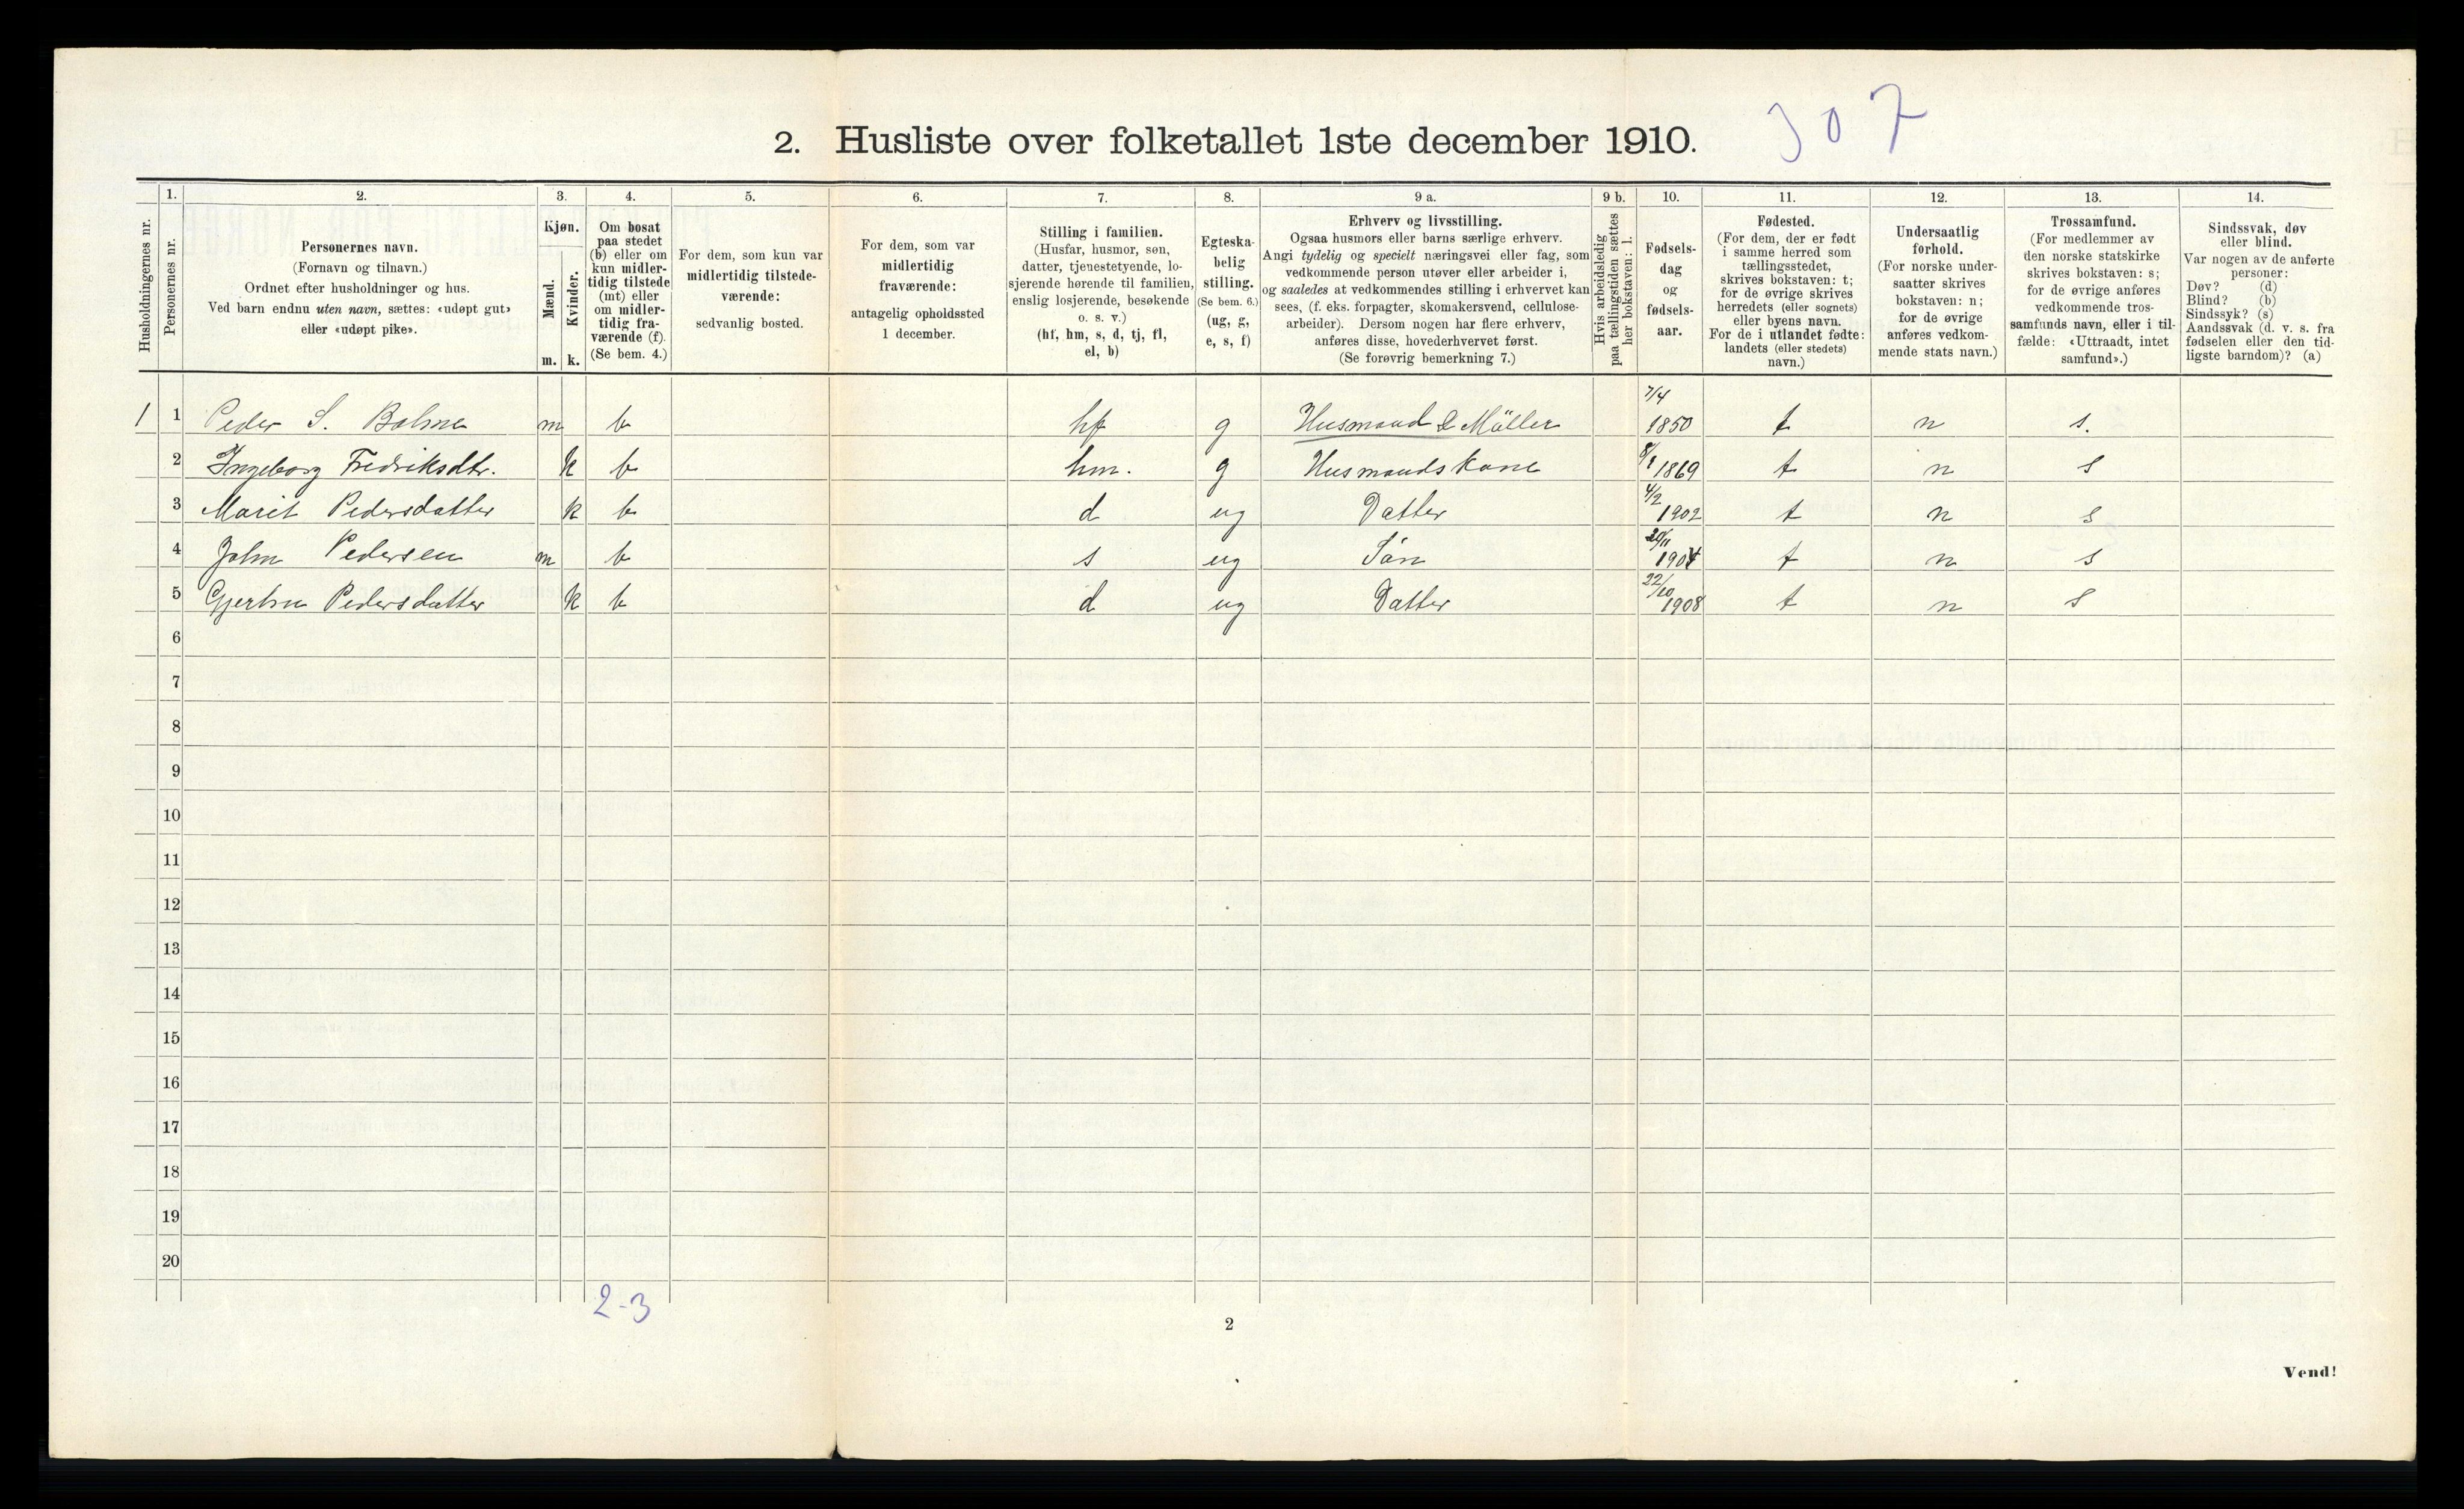 2. Husliste over folketallet 1ste december 1910. 307
Husholdningernes nr.
1.
Personernes nr.
2.
Personernes navn.
(Fornavn og tilnavn.)
Ordnet efter husholdninger og hus.
Ved barn endnu uten navn, sættes: «udøpt gut»
eller «udøpt pike».
3.
Kjøn.
Mænd.
Kvinder.
m. k.
4.
Om bosat
paa stedet
(b) eller om
kun midler-
tidig tilstede
(mt) eller
om midler-
tidig fra-
værende (f).
(Se bem. 4.)
5.
For dem, som kun var
midlertidig tilstede-
værende:
sedvanlig bosted.
6.
For dem, som var
midlertidig
fraværende:
antagelig opholdssted
1 december.
7.
Stilling i familien.
(Husfar, husmor, søn,
datter, tjenestetyende, lo-
sjerende hørende til familien,
enslig losjerende, besøkende
o. s. v.)
(hf, hm, s, d, tj, fl,
el, b)
8.
Egteska-
belig
stilling.
(Se bem. 6.)
(ug, g,
e, s, f)
9 a.
Erhverv og livsstilling.
Ogsaa husmors eller barns særlige erhverv.
Angi tydelig og specielt næringsvei eller fag, som
vedkommende person utøver eller arbeider i,
og saaledes at vedkommendes stilling i erhvervet kan
sees, (f. eks. forpagter, skomakersvend, cellulose-
arbeider). Dersom nogen har flere erhverv,
anføres disse, hovederhvervet først.
(Se forøvrig bemerkning 7.)
9 b.
Hvis arbeidsledig
paa tællingstiden sættes
her bokstaven: l.
10.
Fødsels-
dag
og
fødsels-
aar.
11.
Fødested.
(For dem, der er født
i samme herred som
tællingsstedet,
skrives bokstaven: t;
for de øvrige skrives
herredets (eller sognets)
eller byens navn.
For de i utlandet fødte:
landets (eller stedets)
navn.)
12.
Undersaatlig
forhold.
(For norske under-
saatter skrives
bokstaven: n;
for de øvrige
anføres vedkom-
mende stats navn.)
13.
Trossamfund.
(For medlemmer av
den norske statskirke
skrives bokstaven: s;
for de øvrige anføres
vedkommende tros-
samfunds navn, eller i til-
fælde: «Uttraadt, intet
samfund».)
14.
Sindssvak, døv
eller blind.
Var nogen av de anførte
personer:
Døv? (d)
Blind? (b)
Sindssyk? (s)
Aandssvak (d. v. s. fra
fødselen eller den tid-
ligste barndom)? (a)
1 1 Peder S. Bolme m b hf g Husmand & Müller 7/4 1850 t n s.
2 Ingeborg Fredriksdtr. k b hm. g Husmandskone 8/1 1869 t n s
3 Marit Pedersdatter k b d ug Datter 4/2 1902 t n s
4 John Pedersen m b s ug Søn 20/11 1904 t n s
5 Gjertru Pedersdatter k b d ug Datter 22/10 1908 t n s
6
7
8
9
10
11
12
13
14
15
16
17
18
19
20
2-3
2
Vend!